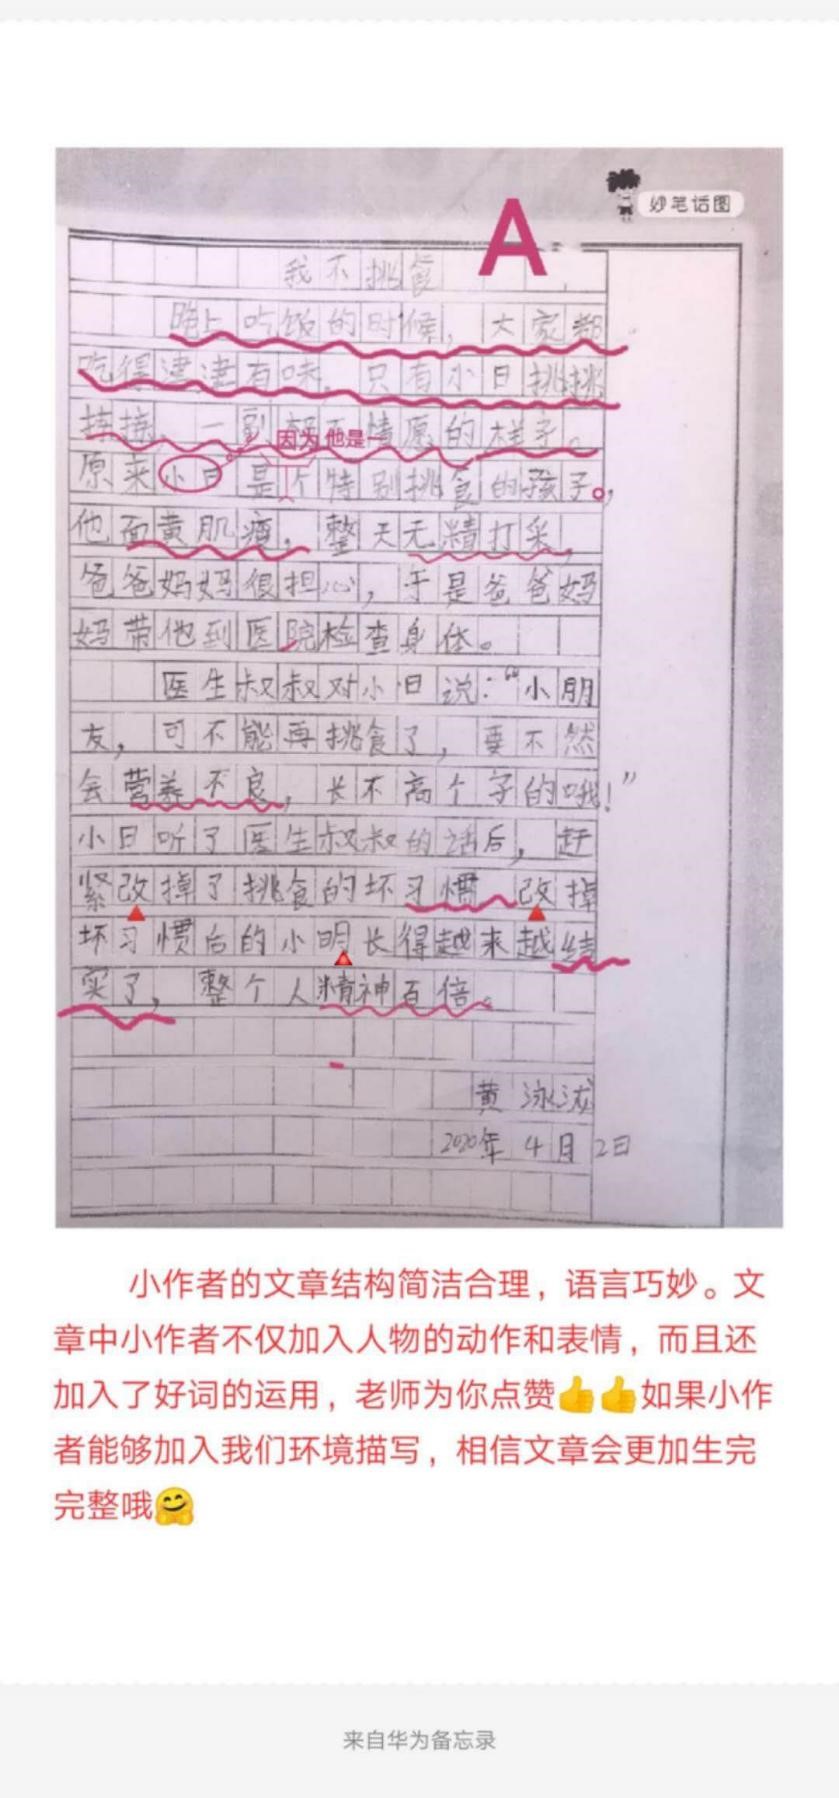 妙笔话图
A
我不挑食
晚上吃饭的时候，大家都
吃得津津有味，只有小日挑挑
拣拣，一副 情愿的样子。
因为他是一
原来小日是个特别挑食的孩子。,
他面黄肌瘦，整天无精打采，
爸爸妈妈很担心，于是爸爸妈
妈带他到医院检查身体。
医生叔叔对小日说：“小朋
友，可不能再挑食了，要不然
会营养不良，长不高个子的哦！”
小日听了医生叔叔的话后，赶
紧改掉了挑食的坏习惯 改掉
坏习惯后的小明长得越来越结
实了，整个人精神百倍。
黄泳
2020年4月2日
小作者的文章结构简洁合理，语言巧妙。文
章中小作者不仅加入人物的动作和表情，而且还
加入了好词的运用，老师为你点赞👍👍如果小作
者能够加入我们环境描写，相信文章会更加生完
完整哦🤗
来自华为备忘录